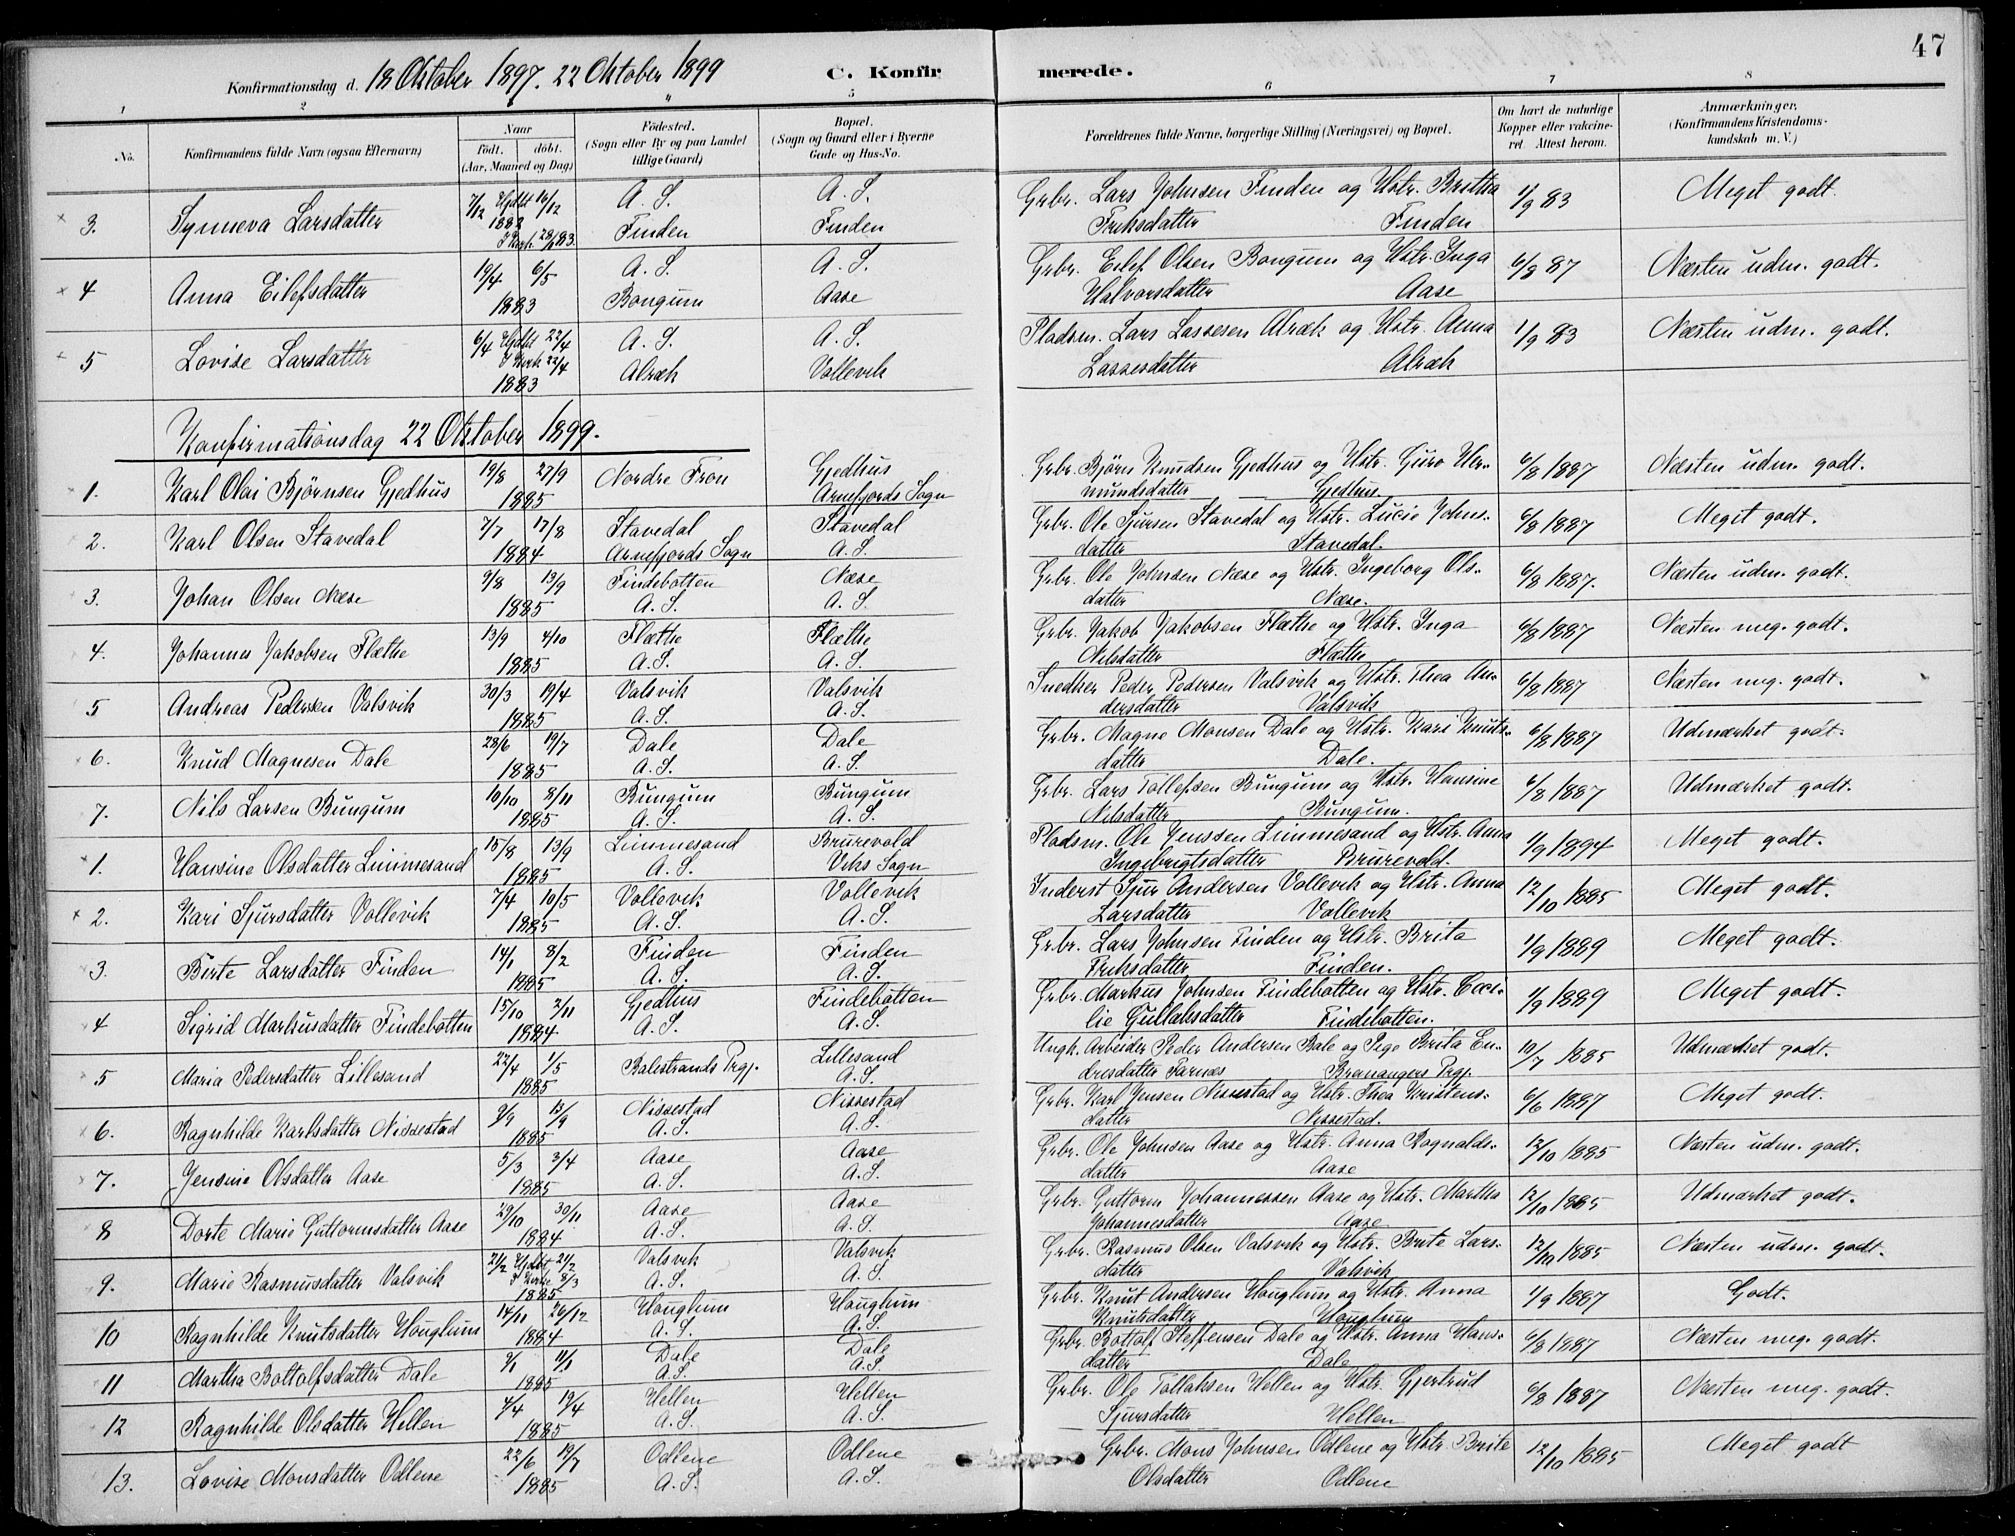 47
Konfirmationsdag d. 18 Oktober 1897. 22 Oktober 1899 C. Konfirmerede.
1 2 " 5 6 7 8
No. Konfirmandens fulde Navn (ogsaa Efternavn) Naar født. døbt. (Aar, Maaned og Dag) Fødested. (Sogn eller By og paa Landet tillige Gaard) Bopæl. (Sogn og Gaard eller i Byerne Gade og Hus-No. Forældrenes fulde Navne, borgerlige Stilling (Næringsvei) og Bopæl. Om havt de naturlige Kopper eller vakcineret. Attest herom. Anmærkninger, (Konfirmandens Kristendomskundskab m. V.)
3. Synneva Larsdatter 7/12 Hjdbt 16/12 A. S. A. S. Grbr. Lars Johnsen Finden og Hstr. Britha 1/9 83 Meget godt.
1882 I Kirk. 28/1 83. Finden Finden Eriksdatter Finden
4 Anna Eilefsdatter 19/4 6/5 A. S. A. S. Grbr. Eilef Olsen Bongum og Hstr. Inga 6/8 87 Næsten udm. godt.
1883 Bongum Aase Halvorsdatter Aase
5 Lovise Larsdatter 6/4 Hjdbt 22/4 A. S. A. S. Pladsm. Lars Lassesen Alræk og Hstr. Anna 1/9 83 Næsten udm. godt.
1883 Alræk Vollevik Lassesdatter Alræk
Konfirmationsdag 22 Oktober 1899.
1. Karl Olai Bjørnsen Gjedhus 19/8 27/9 Nordre Fron Gjedhus Grbr. Bjørn Knudsen Gjedhus og Hstr. Guro Her- 6/8 1887 Næsten udm. godt.
1885 Arnefjords Sogn mundsdatter Gjedhus
2. Karl Olsen Stavedal 7/7 17/8 Stavedal Stavedal Grbr. Ole Sjursen Stavedal og Hstr. Lucie Johns- 6/8 1887 Meget godt.
1884 Arnefjords Sogn A. S. datter Stavedal.
3. Johan Olsen Næse 9/8 13/9 Findebotten Næse Grbr. Ole Johnsen Næse og Hstr. Ingeborg Ols- 6/8 1887. Næsten udm. godt.
1885 A. S. A. S. datter Næse.
4. Johannes Jakobsen Flæthe 13/9 4/10 Flæthe Flæthe Grbr. Jakob Jakobsen Flæthe og Hstr. Inga 6/8 1887 Næsten meg. godt.
1885 A. S. A. S. Nilsdatter Flæthe
5 Andreas Pedersen Valsvik 30/3 19/4 Valsvik Valsvik Snedker Peder Pedersen Valsvik og Hstr. Thea An- 6/8 1887 Næsten meg. godt.
1885 A. S. A. S. dersdatter Valsvik
6. Knud Magnesen Dale 28/6 19/7 Dale Dale Grbr. Magne Monsen Dale og Hstr. Kari Knuts- 6/8 1887 Udmærket godt.
1885 A. S. A. S. datter Dale.
7. Nils Larsen Bungum 10/10 8/11 Bungum Bungum Grbr. Lars Tollefsen Bungum og Hstr. Hansine 6/8 1887 Udmærket godt.
1885 A. S. A. S. Nilsdatter Bungum.
1. Hansine Olsdatter Linmesand 15/8 13/9 Linmesand Brurevold Pladsm. Ole Jenssen Linmesand og Hstr. Anna 1/9 1894 Meget godt.
1885 A. S. Viks Sogn Ingebrigtsdatter Brurevold.
2. Kari Sjursdatter Vollevik 7/4 10/5 Vollevik Vollevik Inderst Sjur Andersen Vollevik og Hstr. Anna 12/10 1885 Meget godt.
1885 A. S. A. S. Larsdatter Vollevik
3. Birte Larsdatter Finden 14/1 8/2 Finden Finden Grbr. Lars Johnsen Finden og Hstr. Brita 1/9 1889 Meget godt.
1885 A. S. A. S. Eriksdatter Finden.
4 Sigrid Markusdatter Findebotten 15/10 2/11 Gjedhus Findebotten Grbr. Markus Johnsen Findebotten og Hstr. Ceci- 1/9 1889 Meget godt.
1884 A. S. A. S. lie Gullaksdatter Findebotten.
5 Maria Pedersdatter Lillesand 22/4 1/5 Balestrands Prgj. Lillesand Ungk. Arbeider Peder Andersen Bale og Pige Brita En- 10/7 1885 Udmærket godt.
1885 A. S. dresdatter Farnes Bremangers Prgj.
6. Ragnhilde Karlsdatter Nissestad 9/9 13/9 Nissestad Nissestad Grbr. Karl Jensen Nissestad og Hstr. Thea Kristens- 6/6 1887 Meget godt.
1885 A. S. A. S. datter Nissestad.
7. Jensine Olsdatter Aase 5/3 3/4 Aase Aase Grbr. Ole Johnsen Aase og Hstr. Anna Ragnalds- 12/10 1885 Næsten udm. godt.
1885 A. S. A. S. datter Aase
8 Dorte Marie Guttormsdatter Aase 29/10 30/11 Aase Aase Grbr. Guttorm Johannessen Aase og Hstr. Martha 12/10 1885 Udmærket godt.
1884 A. S. A. S. Johannesdatter Aase
9. Marie Rasmusdatter Valsvik 21/2 Hjdbt 24/2 Valsvik Valsvik Grbr. Rasmus Olsen Valsvik og Hstr. Brite Lars- 12/10 1885 Næsten udm. godt.
I Kirke 8/3 1885 A. S. A. S. datter Valsvik
10 Ragnhilde Knutsdatter Houglum 14/11 26/12 Houglum Houglum Grbr. Knut Andersen Houglum og Hstr. Anna 1/9 1887 Godt.
1884 A. S. A. S. Knutsdatter Houglum
11 Martha Bottolfsdatter Dale 9/1 11/1 Dale Dale Grbr. Bottolf Steffensen Dale og Hstr. Anna Hans- 6/8 1887 Næsten meg. godt.
1885 A. S. A. S. datter Dale
12 Ragnhilde Olsdatter Hellen 4/4 19/4 Hellen Hellen Grbr. Ole Tollaksen Hellen og Hstr. Gjertrud 6/8 1887 Næsten meg. godt.
1885 A. S. A. S. Sjursdatter Hellen
13. Lovise Monsdatter Odlene 22/6 19/7 Odlene Odlene Grbr. Mons Johnsen Odlene og Hstr. Brite 12/10 1885 Meget godt
1885 A. S. A. S. Olsdatter Odlene